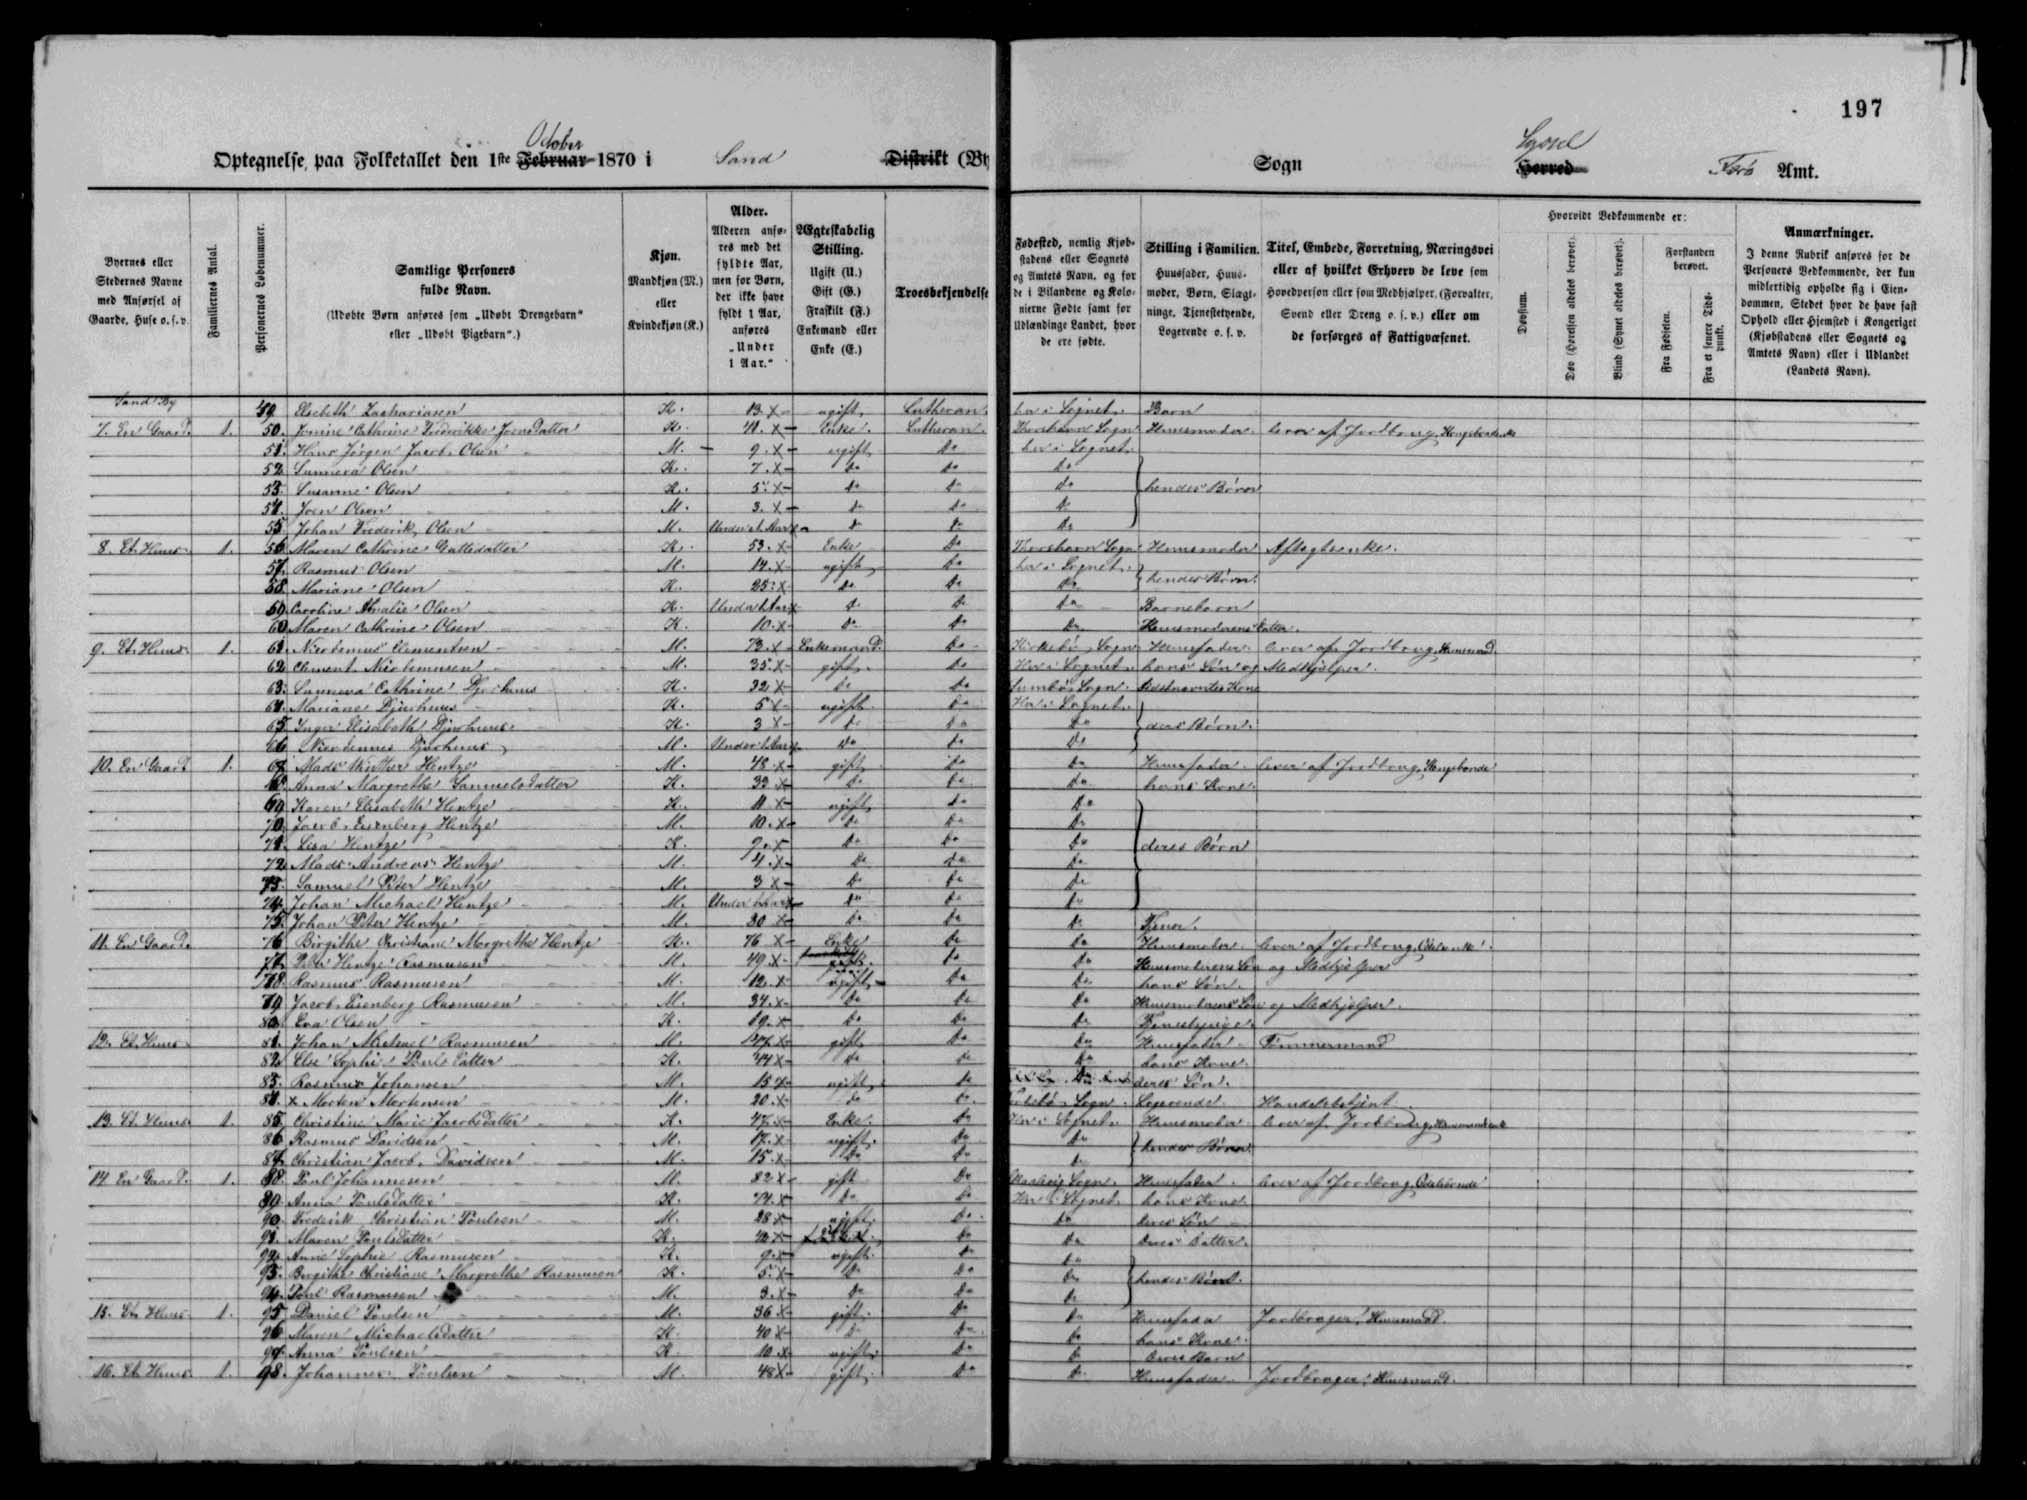 197
October
Optegnelse, paa Folketallet den 1ste Februar 1870 i Sand Distrikt (By
Sogn
Syssel
Herred
Færø Amt.
Byernes eller Stedernes Navne med Anførsel af Gaarde, Huse o.s.v.
Familiernes Antal.
Personernes Løbenummer.
Samtlige Personers fulde Navn.
(Udøbte Børn anføres som „Udøbt Drengebarn“ eller „Udøbt Pigebarn“.)
Kjøn. Mandkjøn (M.) eller Kvindekjøn (K.)
Alder. Alderen anføres med det fyldte Aar, men for Børn, der ikke have fyldt 1 Aar, anføres „Under 1 Aar.“
Ægteskabelig Stilling. Ugift (U.) Gift (G.) Fraskilt (F.) Enkemand eller Enke (E.)
Troesbekjendelse
Fødested, nemlig Kjøbstadens eller Sognets og Amtets Navn, og for de i Bilandene og Kolonierne Fødte samt for Udlændinge Landet, hvor de ere fødte.
Stilling i Familien. Huusfader, Huusmoder, Børn, Slægtninge, Tjenestetyende, Logerende o.s.v.
Titel, Embede, Forretning, Næringsvei eller af hvilket Erhverv de leve som Hovedperson eller som Medhjælper, (Forvalter, Svend eller Dreng o.s.v.) eller om de forsørges af Fattigvæsenet.
Hvorvidt Vedkommende er:
Døvstum.
Døv (Hørelsen aldeles berøvet).
Blind (Synet aldeles berøvet).
Forstanden berøvet.
Fra Fødselen.
Fra et senere Tidspunkt.
Anmærkninger.
I denne Rubrik anføres for de Personers Vedkommende, der kun midlertidig opholde sig i Eiendommen, Stedet hvor de have fast Ophold eller Hjemsted i Kongeriget (Kjøbstadens eller Sognets og Amtets Navn) eller i Udlandet (Landets Navn).
Sand By
49. Elsebeth Zachariasen K. 13. x ugift Lutheran. her i Sognet. Barn
7. En Gaard. 1. 50. Cathrine Fredrikke Joensdatter K. 41. x Enke. Lutheran. Thorshavn Sogn Huusmoder. lever af Jordbrug,
51. Hans Jørgen Jacob Olsen M. 9. x ugift Do her i Sognet.
52. Sunneva Olsen K. 7. x do do Do
53. Susanne Olsen K. 5. x do Do do hendes Børn
54. Joen Olsen M. 3. x do do Do
55. Johan Frederik Olsen M. Under 1 Aar x do do Do
8. Et Huus 1. 56. Maren Cathrine Guttesdatter K. 53. x Enke Do Thorshavn Sogn Huusmoder Aftægtsenke.
57. Rasmus Olsen M. 14. x ugift Do her i Sognet.
58. Mariane Olsen K. 25. x do Do Do hendes Børn.
59. Caroline Amalie Olsen K. Under 1 Aar x do Do Do Barnebarn
60. Maren Cathrine Olsen K. 10. x Do Do Do Huusmoderens Datter.
9. Et Huus 1. 61. Nicodemus Clementsen M. 73. x Enkemand. Do Kirkebø Sogn Huusfader. lever af Jordbrug, Huusmand.
62. Clement Nicodemusen M. 35 x gift. do Her i Sognet. hans Søn og Medhjælper.
63. Sunneva Cathrine Djurhuus K. 32 x Do Do Sumbø Sogn. Kone
64. Mariane Djurhuus K. 5 x ugift Do Her i Sognet.
65. Inger Elisabeth Djurhuus. K. 3 x do Do Do deres Børn.
66. Nicodemus Djurhuus M. Under 1 Aar x Do do Do
10. En Gaard 1. 67. Mads Winther Hentze M. 48. x gift do Do Huusfader lever af Jordbrug, Kongsbonde
68. Anna Margrethe Samuelsdatter K. 32 x Do Do Do hans Kone.
69. Karen Elisabeth Hentze K. 11 x ugift do Do
70. Jacob Eisenberg Hentze M. 10. x do Do Do
71. Lisa Hentze K. 9. x do Do Do deres Børn
72. Mads Andreas Hentze M. 4. x Do do Do
73. Samuel Peter Hentze M. 3 x Do do Do
74. Johan Michael Hentze M. Under 1 Aar x Do do Do
75. Johan Peter Hentze M. 30 x do Do Do Tjener.
11. En Gaard. 76. Birgithe Christiane Margrethe Hentze K. 76 x Enke Do Do Huusmoder. lever af Jordbrug,
77. Peter Hentze Rasmusen M. 49. x gift. Do Do Huusmoderens Søn og Medhjælper
78. Rasmus Rasmusen M. 12. x ugift Do Do hans Søn.
79. Jacob Eisenberg Rasmusen M. 34. x Do Do Do Huusmoderens Søn og Medhjælper.
80. Eva Olsen K. 19. x Do Do Do Tjenestepige.
12. Et Huus 81. Johan Michael Rasmusen M. 47. x gift Do Do Huusfader Tømmermand
82. Else Sophie Poulsdatter K. 44 x do do Do hans Kone.
83. Rasmus Johansen M. 15 x ugift do Do deres Søn.
84. x Morten Mortensen M. 20. x do Do Sogn. Logerende. Handelsbetjent
13. Et Huus 1. 85. Christine Marie Jacobsdatter K. 47. x Enke. Do Her i Sognet. Huusmoder lever af Jordbrug,
86. Rasmus Davidsen M. 17. x ugift. Do Do
87. Christian Jacob Davidsen M. 15. x Do Do Do hendes Børn
14 En Gaard. 1. 88. Poul Johannesen M. 82 x gift Do Sogn. Huusfader. lever af Jordbrug, Odelsbonde
89. Anna Poulsdatter K. 74. x Do Do Her i Sognet. hans Kone
90. Frederik Christian Poulsen M. 28 x ugift Do Do deres Søn
91. Maren Poulsdatter K. x Do Do deres Datter.
92. Anne Sophie Rasmusen K. 9. x ugift. Do Do
93. Birgithe Christiane Margrethe Rasmusen K. 5. x Do Do Do hendes Børn.
94. Poul Rasmusen M. 3. x Do Do Do
15. Et Huus 1. 95. Daniel Poulsen M. 36 x gift Do Do Huusfader Jordbruger, Huusmand.
96. Maren Michaelsdatter K. 40 x Do Do Do hans Kone.
97. Anna Poulsen K. 10. x ugift Do Do deres Barn
16. Et Huus. 1. 98. Johannes Poulsen M. 48 x gift Do Do Huusfader Jordbruger, Huusmand.